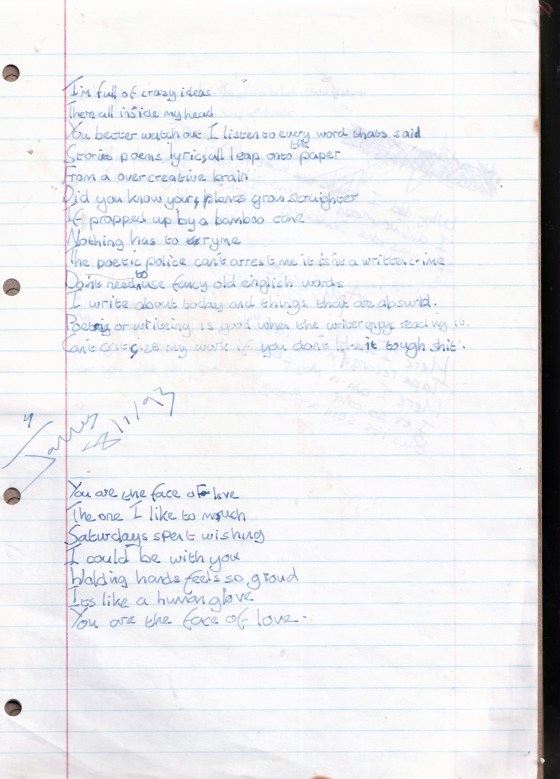 I'm full of crazy ideas
Theres all inside my head
You better watch out I listen to every word thats said
Stories poems lyrics all leap onto the paper
From a over creative brain
Did you know your plants grow straighter
If propped up by a bamboo cane
Nothing has to ryme
The poetic police can't arrest me it isnt a written crime
Don't need to use fancy old english words
I write about today and things that are absurd.
Poetry or writeing is good when the writer enjoys reading it.
Can't my work if you don't like it tough shit.
James
You are the face of love
The one I like to much
Saturdays spent wishing
I could be with you
Holding hands feels so groud
Its like a human glove
You are the face of love.